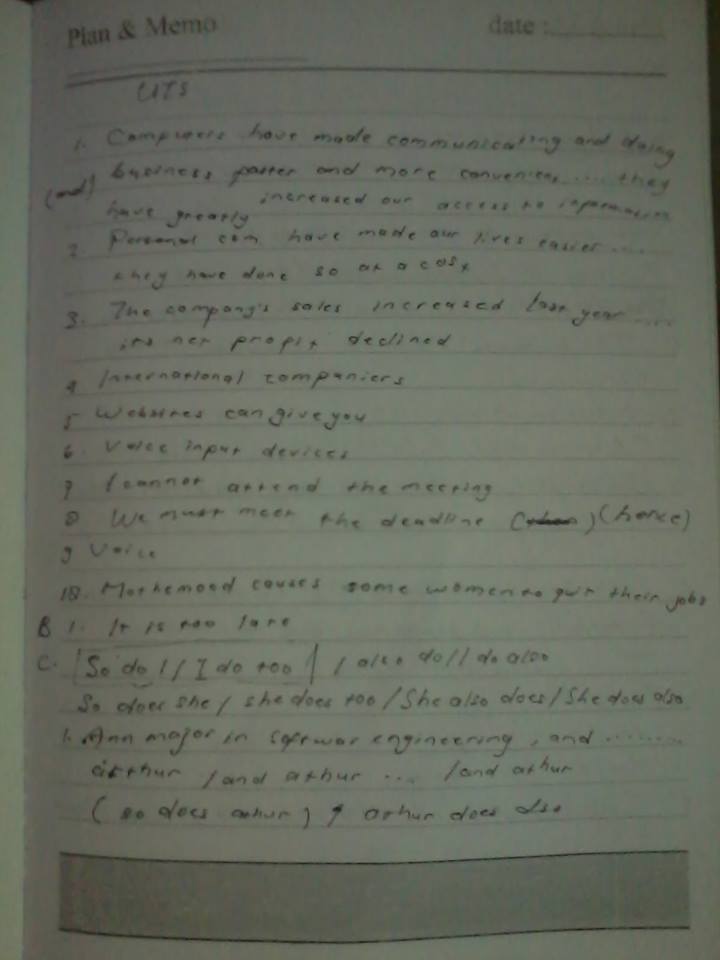 Plan & Memo date :
UTS
1. Computers have made communicating and doing
business faster and more convenien..... they
(and) have greatly increased our access to information
2. Personal com have made our lives easier.....
they have done so at a cost
3. The company's sales increased last year.....
its net profit declined
4 International companiers
5 Websites can give you
6. Voice input devices
7 I cannot attend the meeting
8 We must meet the deadline () (hence)
9 Voice
10. Motherhood causes some women to quit their jobs
B 1. It is too late
C. So do I / I do too / I also do / I do also
So does she / she does too / She also does / She does also
1. Ann major in softwar engineering, and ........
arthur / and athur .... / and athur
(so does athur) athur does also